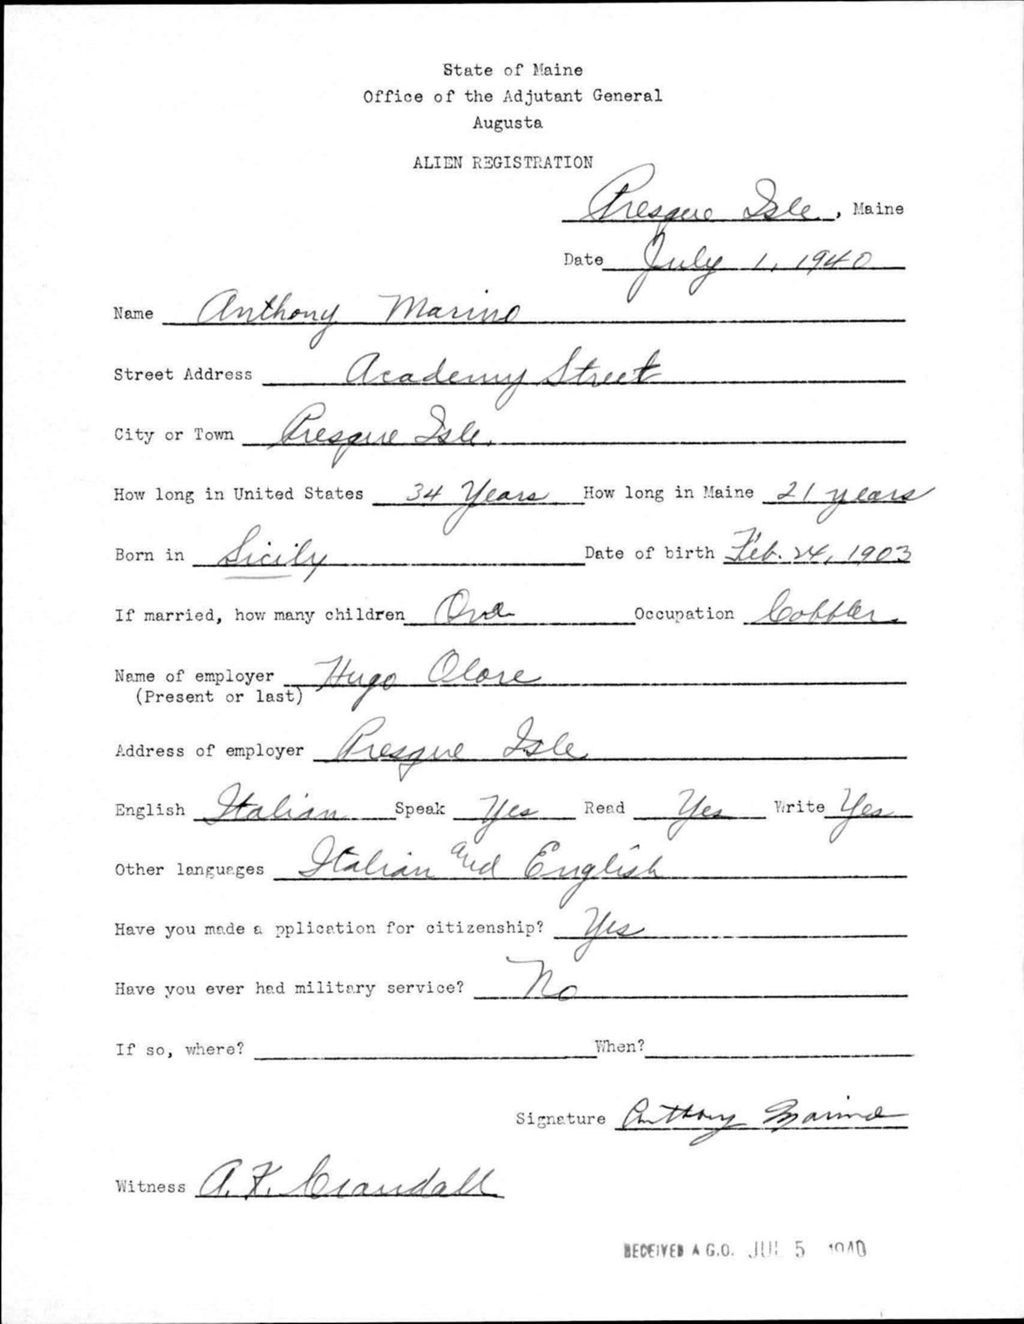 State of Maine
Office of the Adjutant General
Augusta
ALIEN REGISTRATION
Presque Isle, Maine
Date July 1, 1940
Name Anthony Marino
Street Address Academy Street
City or Town Presque Isle.
How long in United States 34 Years How long in Maine 21 years
Born in Sicily Date of birth Feb. 24, 1903
If married, how many children One Occupation Cobbler.
Name of employer Hugo Olore
(Present or last)
Address of employer Presque Isle
English Italian Speak Yes Read Yes Write Yes
Other languages Italian and English
Have you made a pplication for citizenship? Yes
Have you ever had military service? No
If so, where? When?
Signature Anthony Marino
Witness A. F. Crandall
RECEIVED A G.O. JUL 5 1940